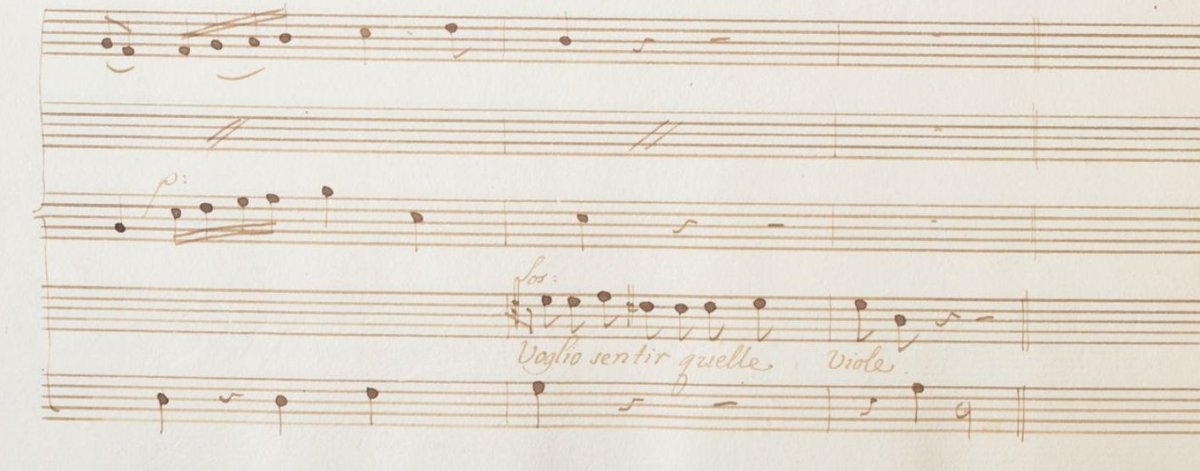 p:
Sos:
Voglio sentir quelle Viole